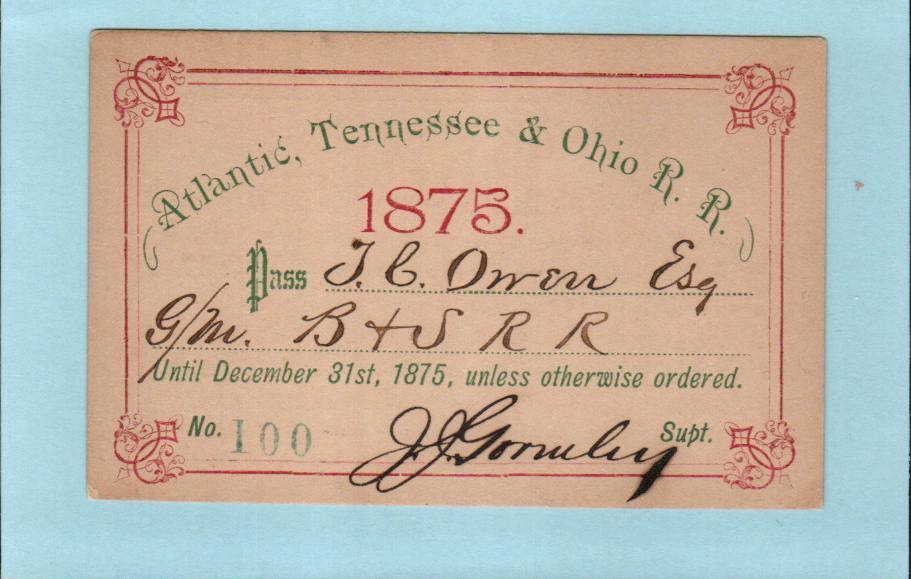 Atlantic, Tennessee & Ohio R. R.
1875.
Pass J. C. Owen Esq
G/M. B & S R R
Until December 31st, 1875, unless otherwise ordered.
No. 100 J. J. Gormley Supt.